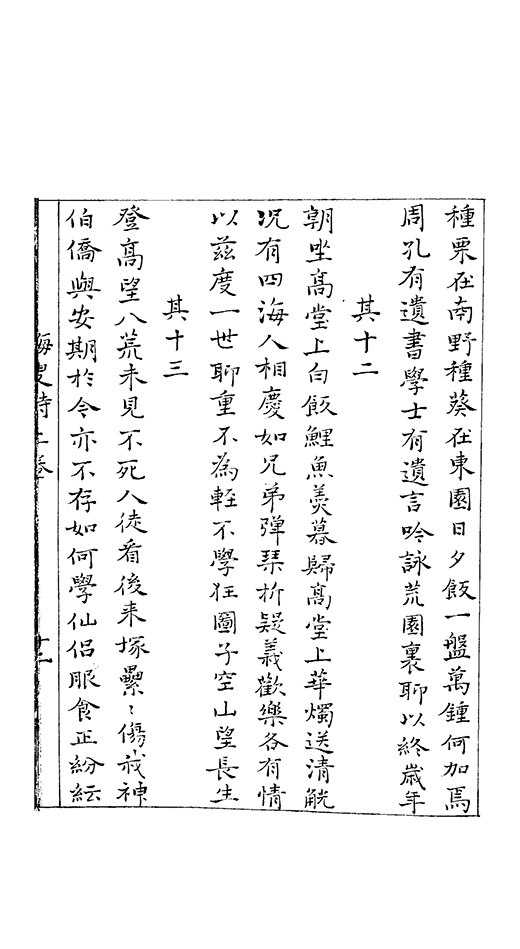 種粟在南野種葵在東園日夕飯一盤萬鍾何加焉
周孔有遺書學士有遺言吟詠荒園裏聊以終歲年
其十二
朝坐高堂上白飯鯉魚羮暮歸高堂上華燭送清觥
况有四海人相慶如兄弟彈琹析疑義歡樂各有情
以兹度一世聊重不為輕不學狂圖子空山望長生
其十三
登高望八荒未見不死人徒看後来塚纍〻傷我神
伯僑與安期於今亦不存如何學仙侣服食正紛紜
海叟詩上卷
十二